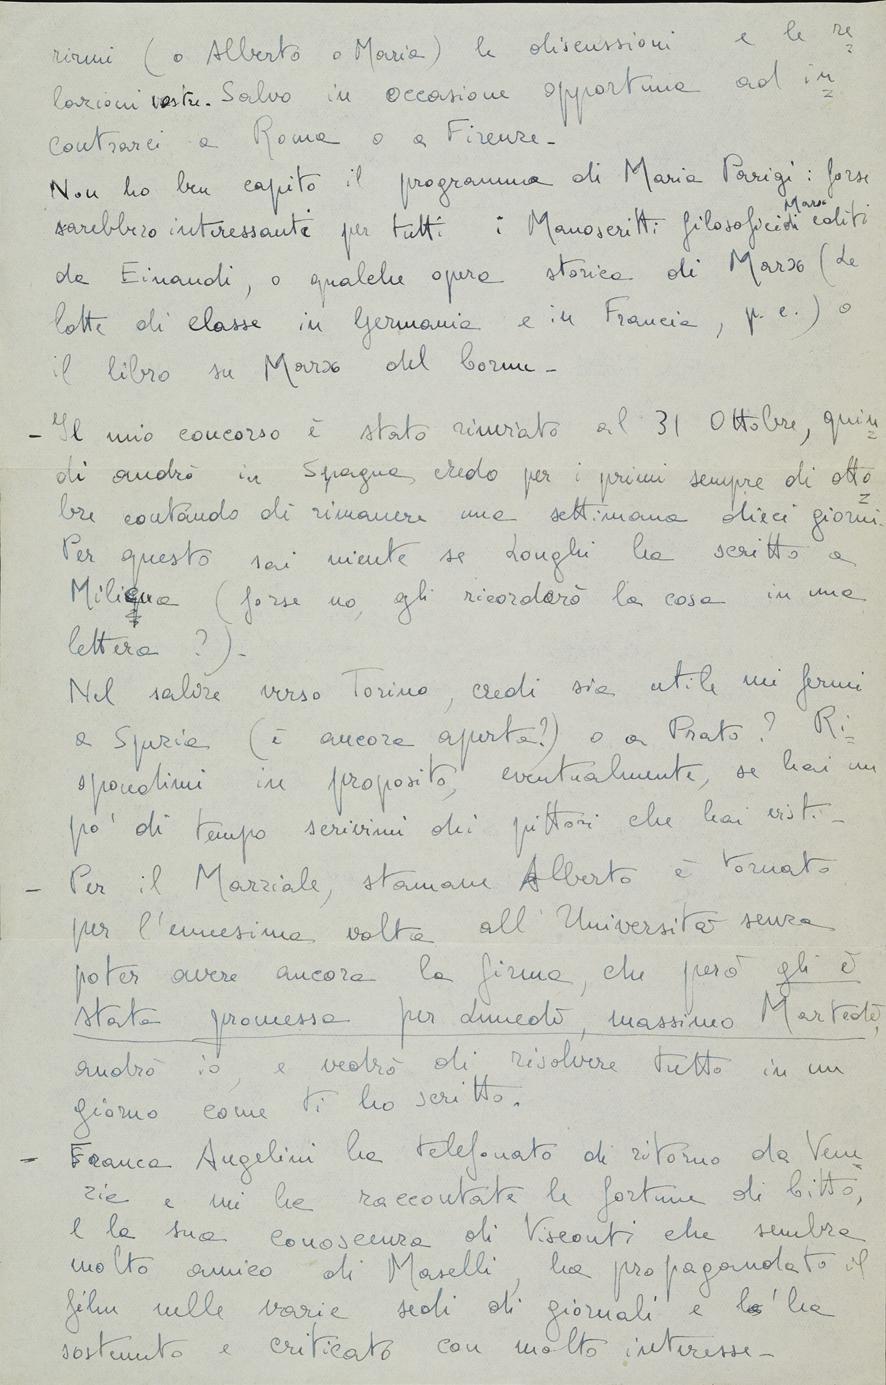 rirmi (o Alberto o Maria) le discussioni e le re=
lazioni vostre. Salvo in occasione opportuna ad in=
contrarci a Roma o a Firenze -
Non ho ben capito il programma di Maria Parigi: forse
sarebbero interessanti per tutti i Manoscritti filosofici di Marx editi
da Einaudi, o qualche opera storica di Marx (Le
lotte di classe in Germania e in Francia, p. e.) o
il libro su Marx del Cornu -
- Il mio concorso è stato rinviato al 31 Ottobre, quin=
di andrò in Spagna credo per i primi sempre di otto=
bre contando di rimanere una settimana dieci giorni.
Per questo sai niente se Longhi ha scritto a
Milicua (forse no, gli ricorderò la cosa in una
lettera?) -
Nel salire verso Torino, credi sia utile mi fermi
a Spezia (è ancora aperta?) o a Prato? Ri=
spondimi in proposito, eventualmente, se hai un
pò di tempo scrivimi dei pittori che hai visti -
- Per il Marziale, stamane Alberto è tornato
per l'ennesima volta all'Università senza
poter avere ancora la firma, che però gli è
stata promessa per Lunedì, massimo Martedì,
andrò io, e vedrò di risolvere tutto in un
giorno come ti ho scritto.
- Franca Angelini ha telefonato di ritorno da Vene=
zia e mi ha raccontate le fortune di Citto,
e la sua conoscenza di Visconti che sembra
molto amico di Maselli, ha propagandato il
film nelle varie sedi di giornali e l'ha
sostenuto e criticato con molto interesse -